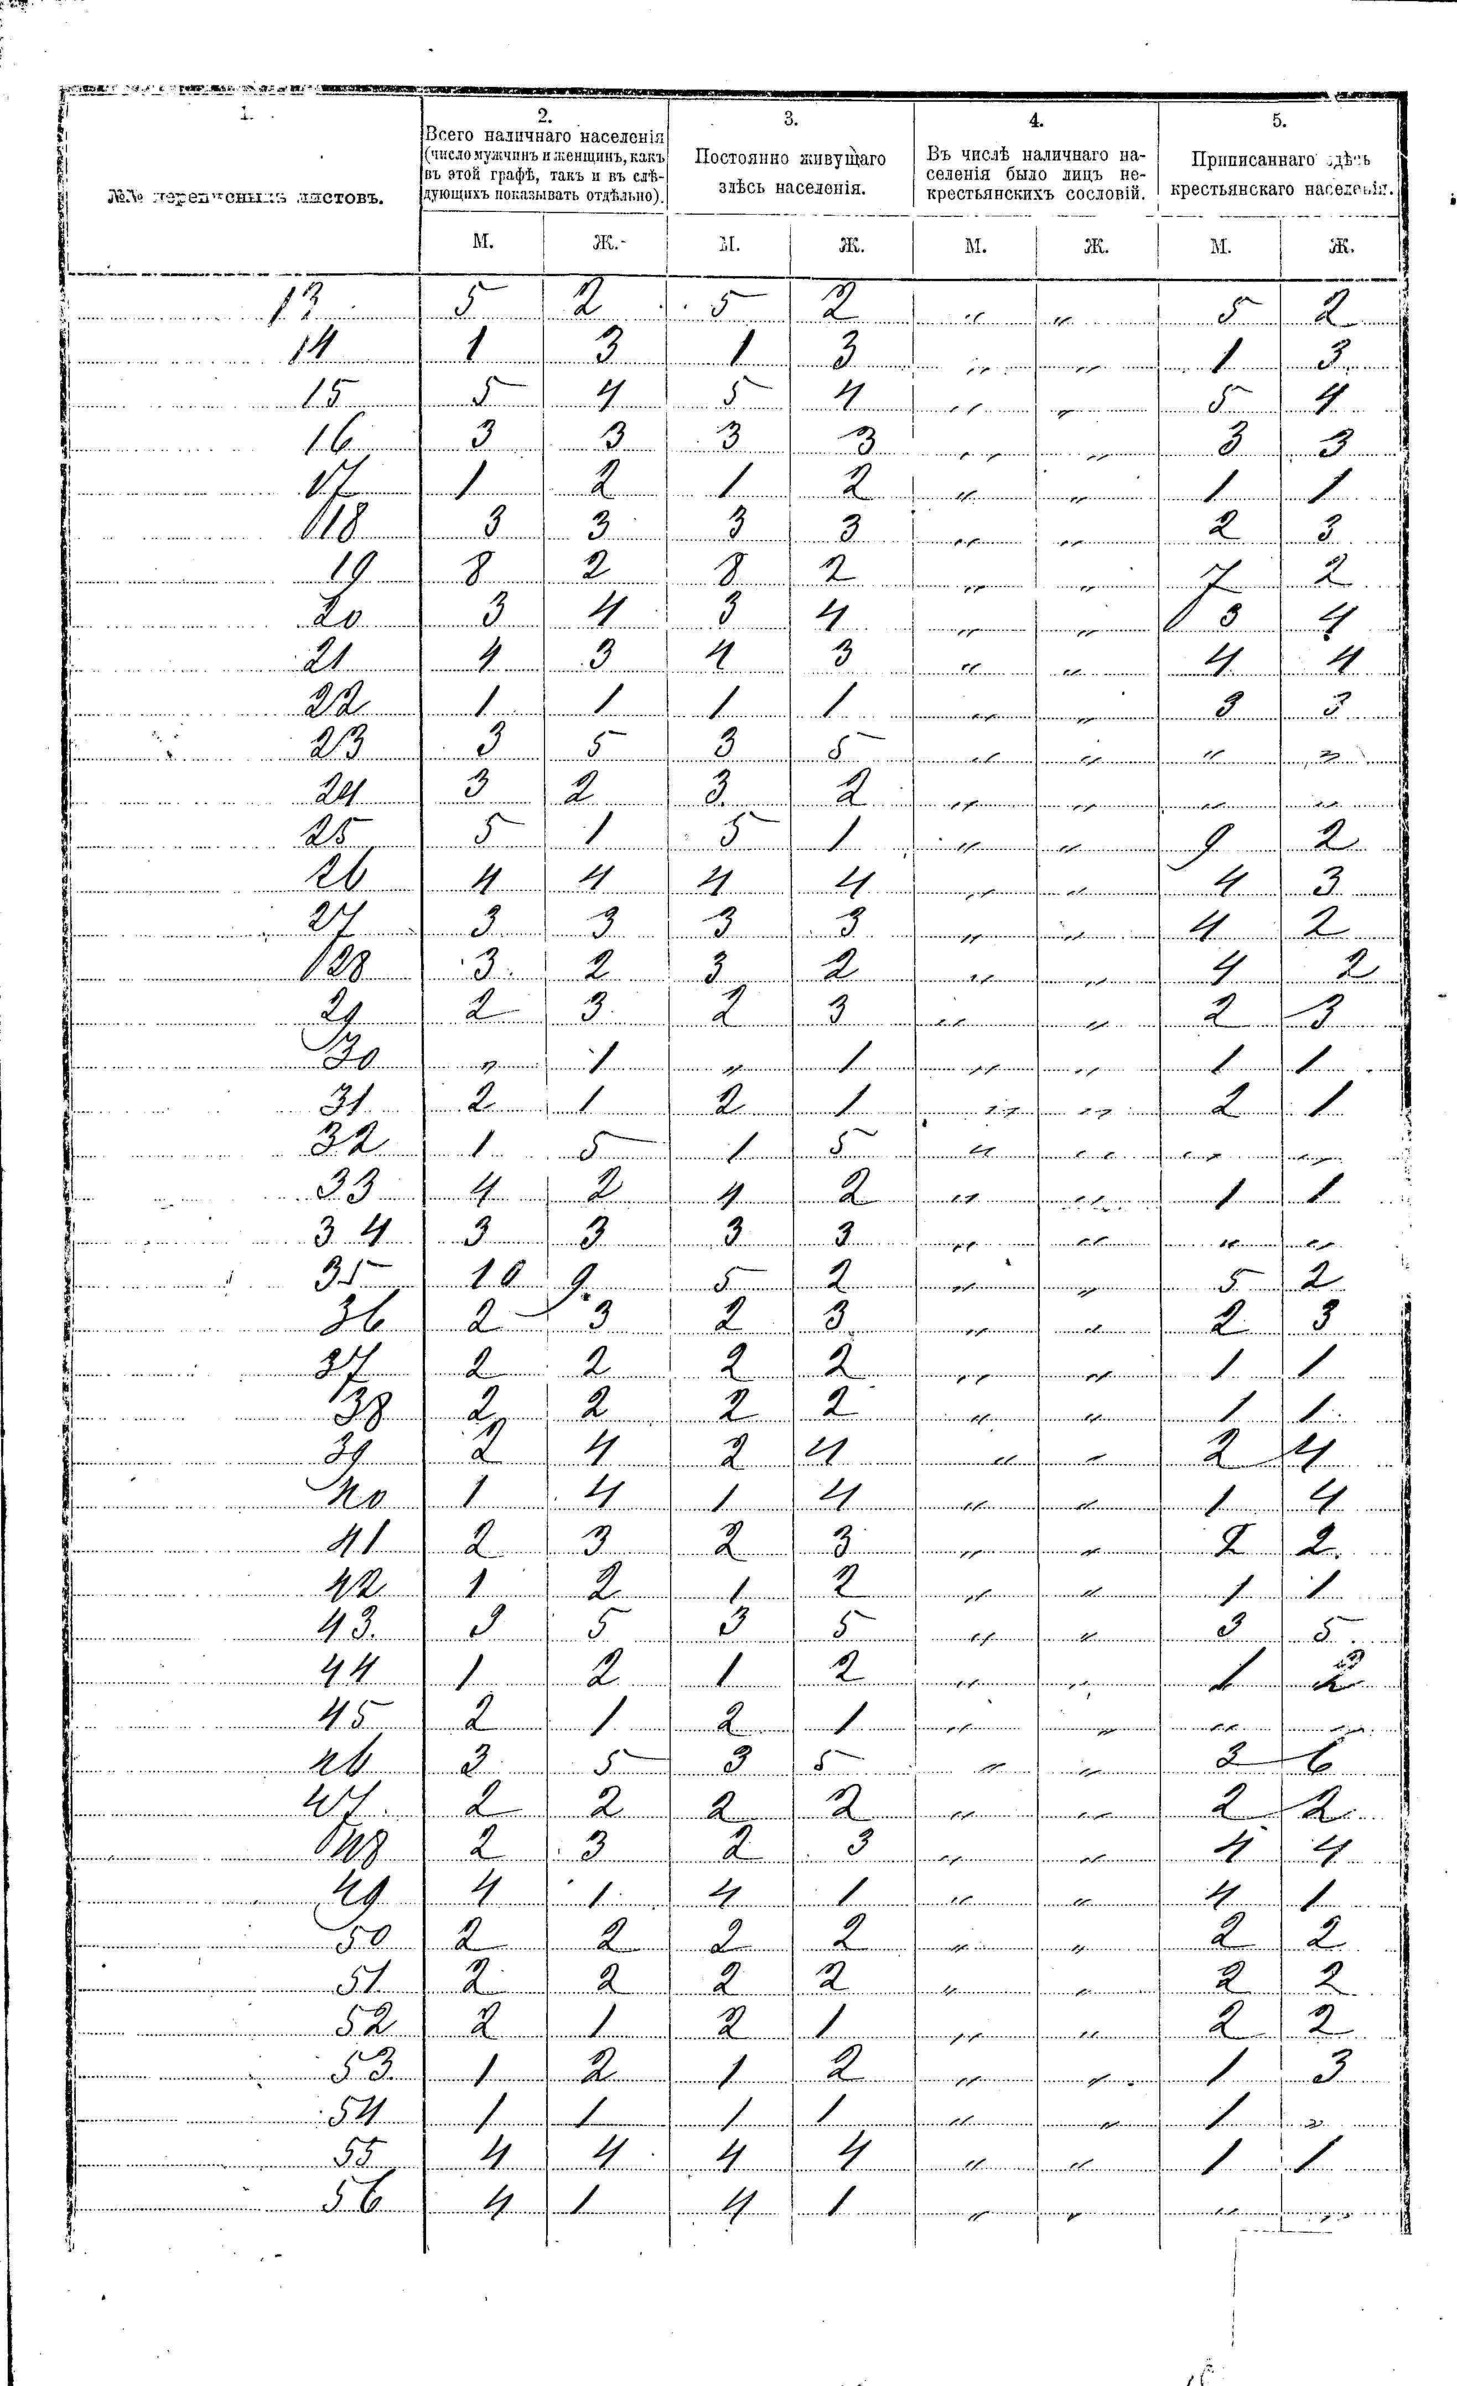 1. 2. 3. 4. 5.
№№ переписныхъ листовъ.
Всего наличнаго населенія
(число мужчинъ и женщинъ, какъ
въ этой графѣ, такъ и въ слѣ-
дующихъ показывать отдѣльно).
Постоянно живущаго
здѣсь населенія.
Въ числѣ наличнаго на-
селенія было лицъ не-
крестьянскихъ сословій.
Приписаннаго здѣсь
крестьянскаго населенія.
М. Ж. М. Ж. М. Ж. М. Ж.
13 5 2 5 2 " " 5 2
14 1 3 1 3 " " 1 3
15 5 4 5 4 " " 5 4
16 3 3 3 3 " " 3 3
17 1 2 1 2 " " 1 1
18 3 3 3 3 " " 2 3
19 8 2 8 2 " " 7 2
20 3 4 3 4 " " 3 4
21 4 3 4 3 " " 4 4
22 1 1 1 1 " " 3 3
23 3 5 3 5 " " " "
24 3 2 3 2 " " " "
25 5 1 5 1 " " 9 2
26 4 4 4 4 " " 4 3
27 3 3 3 3 " " 4 2
28 3 2 3 2 " " 4 2
29 2 3 2 3 " " 2 3
30 " 1 " 1 " " 1 1
31 2 1 2 1 " " 2 1
32 1 5 1 5 " " " "
33 4 2 4 2 " " 1 1
34 3 3 3 3 " " " "
35 10 9 5 2 " " 5 2
36 2 3 2 3 " " 2 3
37 2 2 2 2 " " 1 1
38 2 2 2 2 " " 1 1
39 2 4 2 4 " " 2 4
40 1 4 1 4 " " 1 4
41 2 3 2 3 " " 2 2
42 1 2 1 2 " " 1 1
43 3 5 3 5 " " 3 5
44 1 2 1 2 " " 1 2
45 2 1 2 1 " " " "
46 3 5 3 5 " " 3 6
47 2 2 2 2 " " 2 2
48 2 3 2 3 " " 4 4
49 4 1 4 1 " " 4 1
50 2 2 2 2 " " 2 2
51 2 2 2 2 " " 2 2
52 2 1 2 1 " " 2 2
53 1 2 1 2 " " 1 3
54 1 1 1 1 " " 1 "
55 4 4 4 4 " " 1 1
56 4 1 4 1 " " " "